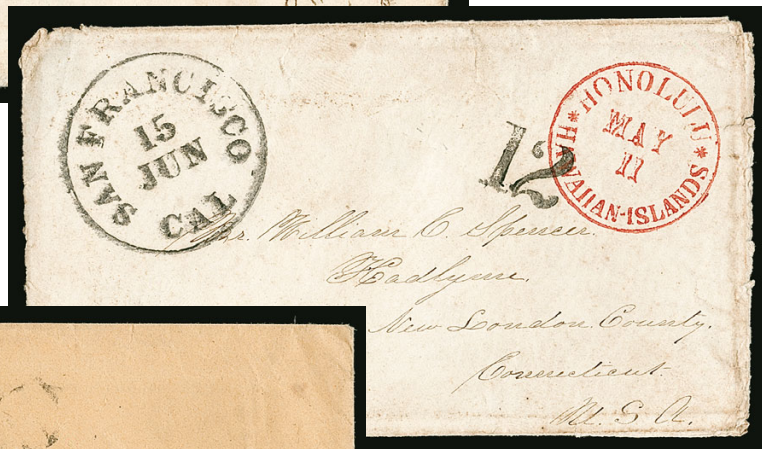 SAN FRANCISCO
15
JUN
CAL
12
HONOLULU
MAY
11
*HAWAIIAN-ISLANDS*
Mr. William C. Spencer.
Hadlyme.
New London County.
Connecticut.
U. S. A.